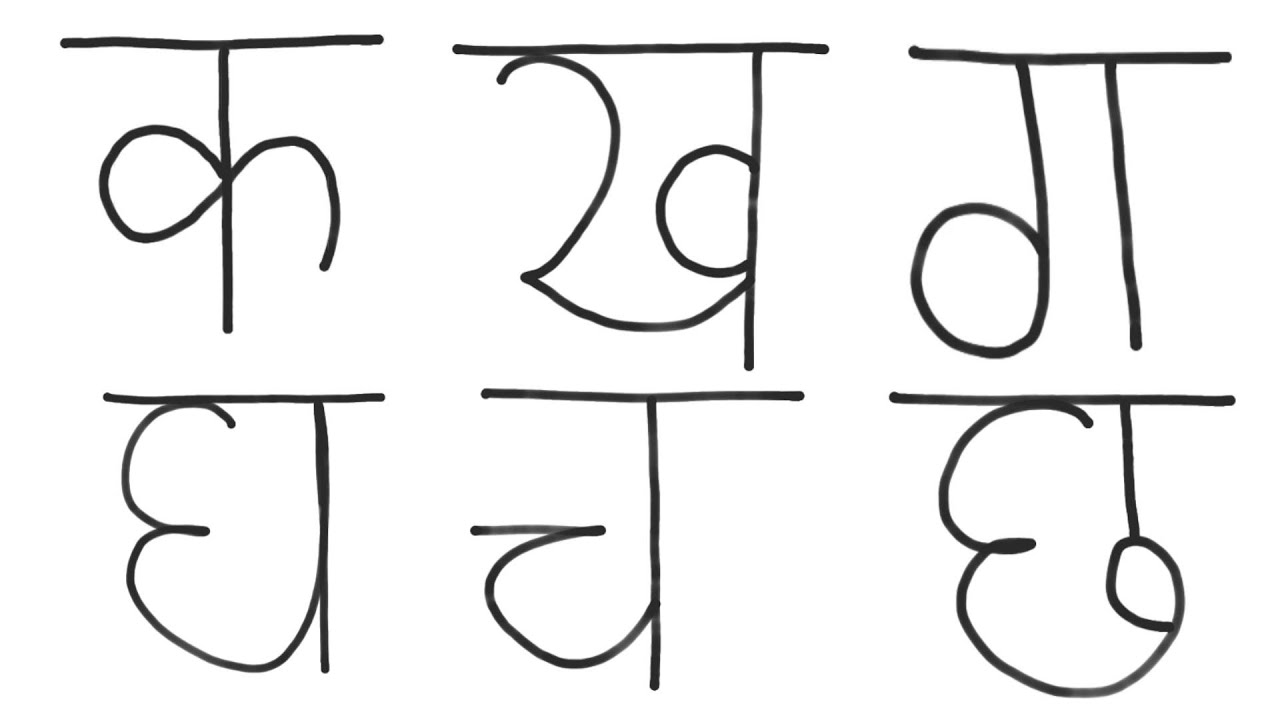 क ख ग
घ च छ